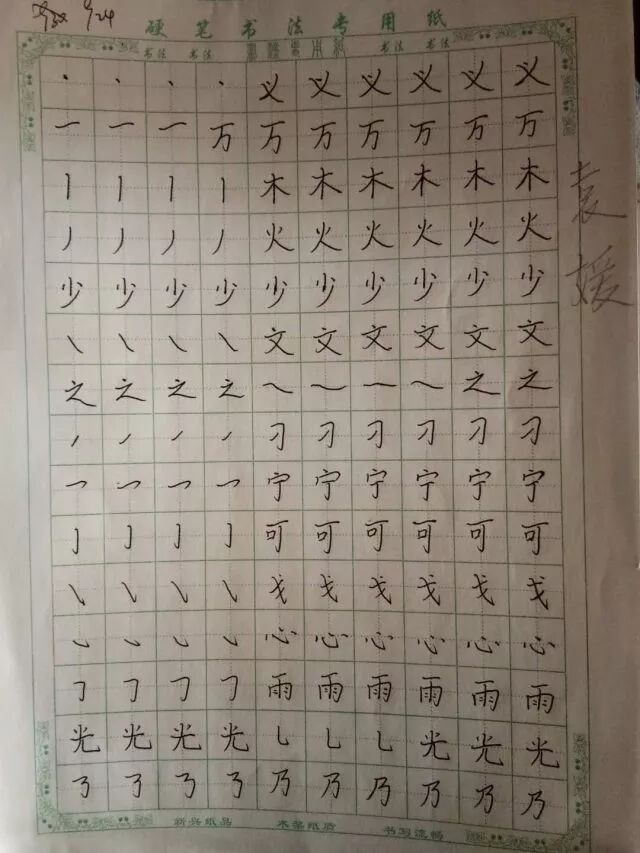 9/24
硬笔书法专用纸
书法 书法 书法 书法
丶 丶 丶 丶 义 义 义 义 义 义
一 一 一 万 万 万 万 万 万 万
丨 丨 丨 丨 木 木 木 木 木 木
丿 丿 丿 丿 火 火 火 火 火 火
少 少 少 少 少 少 少 少 少 少
㇏ ㇏ ㇏ ㇏ 文 文 文 文 文 文
之 之 之 之 ㇏ ㇏ ㇏ ㇏ 之 之
㇀ ㇀ ㇀ ㇀ 刁 刁 刁 刁 刁 刁
乛 乛 乛 乛 宁 宁 宁 宁 宁 宁
亅 亅 亅 亅 可 可 可 可 可 可
㇂ ㇂ ㇂ ㇂ 戈 戈 戈 戈 戈 戈
㇃ ㇃ ㇃ ㇃ 心 心 心 心 心 心
㇆ ㇆ ㇆ ㇆ 雨 雨 雨 雨 雨 雨
光 光 光 光 乚 乚 乚 光 光 光
㇡ ㇡ ㇡ ㇡ 乃 乃 乃 乃 乃 乃
新兴纸品 木浆纸质 书写流畅
袁媛